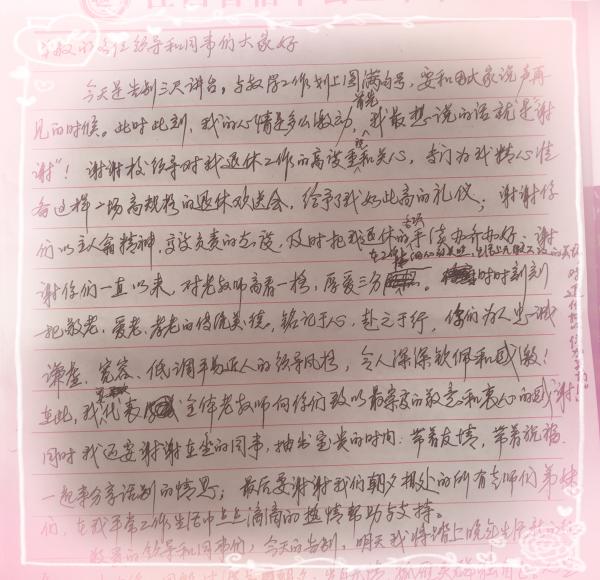 尊敬的各位领导和同事们大家好
今天是告别三尺讲台，与教学工作划上圆满句号，要和大家说声再
见的时候。此时此刻，我的心情是多么激动，首先我最想说的话就是"谢
谢"！谢谢校领导对我退休工作的高度重视和关心，专门为我精心准
备这样一场高规格的退休欢送会，给予了我如此高的礼仪；谢谢你
们以主人翁精神，及时把我退休的各项手续办齐办好，谢
谢你们一直以来，对老教师高看一格，厚爱三分。时时刻刻
把敬老、爱老、孝老的传统美德，铭记于心，赴之于行，你们为人忠诚
谦虚、宽容、低调平易近人的领导风格，令人深深钦佩和感激！
在此，我代表全体老教师向你们致以最崇高的敬意和衷心的感谢！
同时我还要谢谢在坐的同事，抽出宝贵的时间，带着友情，带着祝福，
一起来分享话别的情思；最后要谢谢我们朝夕相处的所有老师们弟妹
们，在我平常工作生活中点点滴滴的热情帮助与支持。
敬爱的领导和同事们，今天的告别，明天我将踏上晚年生活